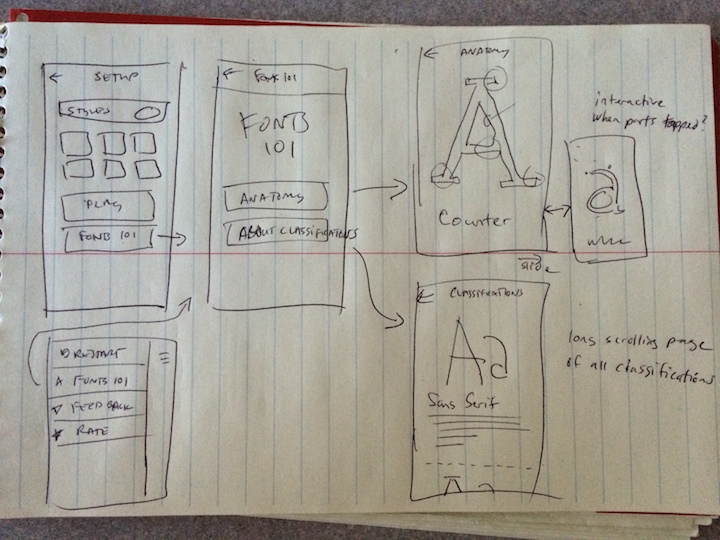 ← SETUP
STYLES
PLAY
FONTS 101
← FONTS 101
FONTS
101
ANATOMY
ABOUT CLASSIFICATIONS
← ANATOMY
A
Counter
slide
interactive
when parts tapped?
a
← CLASSIFICATIONS
Aa
Sans Serif
long scrolling page
of all classifications
RESTART
A FONTS 101
FEEDBACK
★ RATE